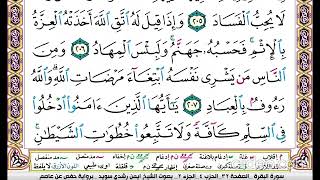 لَا يُحِبُّ ٱلۡفَسَادَ ٢٠٥ وَإِذَا قِيلَ لَهُ ٱتَّقِ ٱللَّهَ أَخَذَتۡهُ ٱلۡعِزَّةُ
بِٱلۡإِثۡمِۚ فَحَسۡبُهُۥ جَهَنَّمُۖ وَلَبِئۡسَ ٱلۡمِهَادُ ٢٠٦ وَمِنَ
ٱلنَّاسِ مَن يَشۡرِي نَفۡسَهُ ٱبۡتِغَآءَ مَرۡضَاتِ ٱللَّهِۚ وَٱللَّهُ
رَءُوفُۢ بِٱلۡعِبَادِ ٢٠٧ يَـٰٓأَيُّهَا ٱلَّذِينَ ءَامَنُواْ ٱدۡخُلُواْ
فِي ٱلسِّلۡمِ كَآفَّةٗ وَلَا تَتَّبِعُواْ خُطُوَٰتِ ٱلشَّيۡطَٰنِۚ
سورة البقرة الصفحة ٣٢ الحزب ٤ الجزء ٢ بصوت الشيخ أيمن رشدي سويد رواية حفص عن عاصم